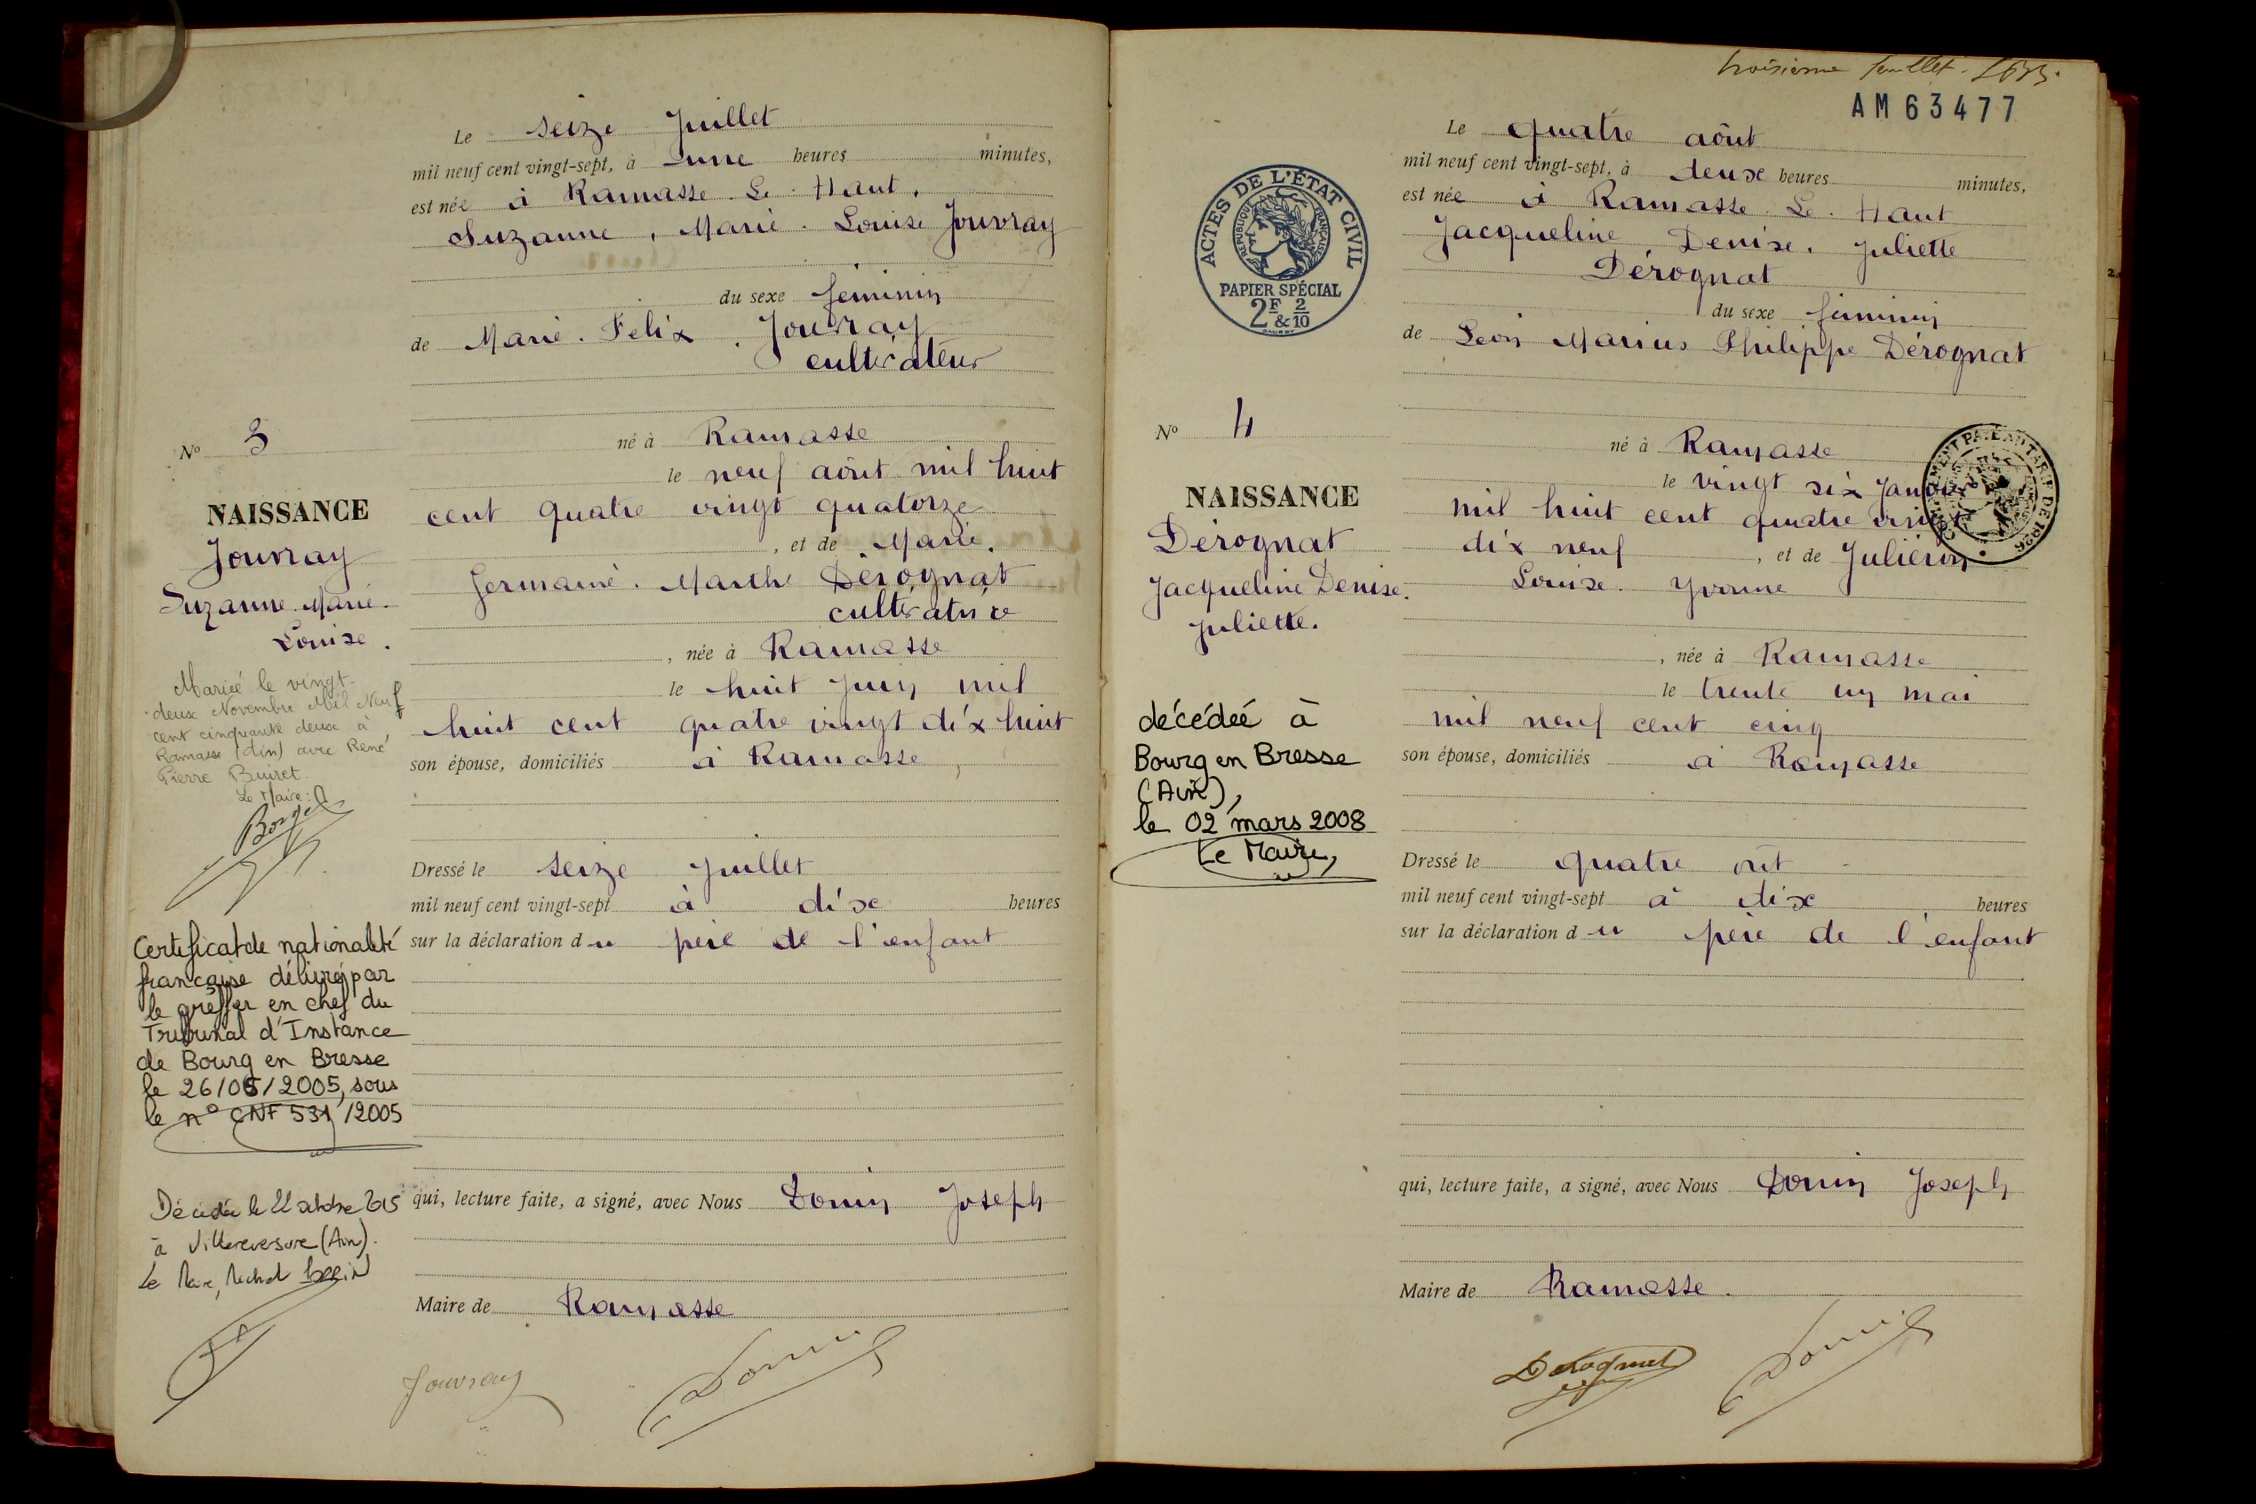 Le seize Juillet
mil neuf cent vingt-sept, à une heures minutes,
est née à Ramasse Le Haut,
Suzanne, Marie Louise Jouvray
du sexe féminin
de Marie Felix Jouvray
cultivateur
né à Ramasse
le neuf août mil huit
cent quatre vingt quatorze
, et de Marie
Germaine Marthe Dérognat
cultivatrice
, née à Ramasse
le huit Juin mil
huit cent quatre vingt dix huit
son épouse, domiciliés à Ramasse,
Dressé le seize Juillet
mil neuf cent vingt-sept à dix heures
sur la déclaration du père de l'enfant
qui, lecture faite, a signé, avec Nous Donin Joseph
Maire de Ramasse
Jouvray
Donin
No 3
NAISSANCE
Jouvray
Suzanne Marie
Louise.
Mariée le vingt-
deux Novembre Mil Neuf
cent cinquante deux à
Ramasse (Ain) avec René
Pierre Buiret.
Le Maire:
Certificat de nationalité
française délivré par
le greffier en chef du
Tribunal d'Instance
de Bourg en Bresse
le 26/05/2005, sous
le n° CNF 531/2005
Décédée le 22 octobre 2015
à Villereversure (Ain).
Le Maire, Michel
troisième feuillet.
AM63477
ACTES DE L'ÉTAT CIVIL
RÉPUBLIQUE FRANÇAISE
PAPIER SPÉCIAL
2F & 2/10
Le quatre août
mil neuf cent vingt-sept, à deux heures minutes,
est née à Ramasse Le Haut
Jacqueline, Denise, Juliette
Dérognat
du sexe féminin
de Léon Marius Philippe Dérognat
né à Ramasse
le vingt six Janvier
mil huit cent quatre vingt
dix neuf, et de Juliéron
Louise Yvonne
, née à Ramasse
le trente un mai
mil neuf cent cinq
son épouse, domiciliés à Ramasse
Dressé le quatre oût
mil neuf cent vingt-sept à dix heures
sur la déclaration du père de l'enfant
qui, lecture faite, a signé, avec Nous Donin Joseph
Maire de Ramasse.
Dérognat
Donin
No 4
NAISSANCE
Dérognat
Jacqueline Denise
Juliette.
décédée à
Bourg en Bresse
(Ain),
le 02 mars 2008
Le Maire,